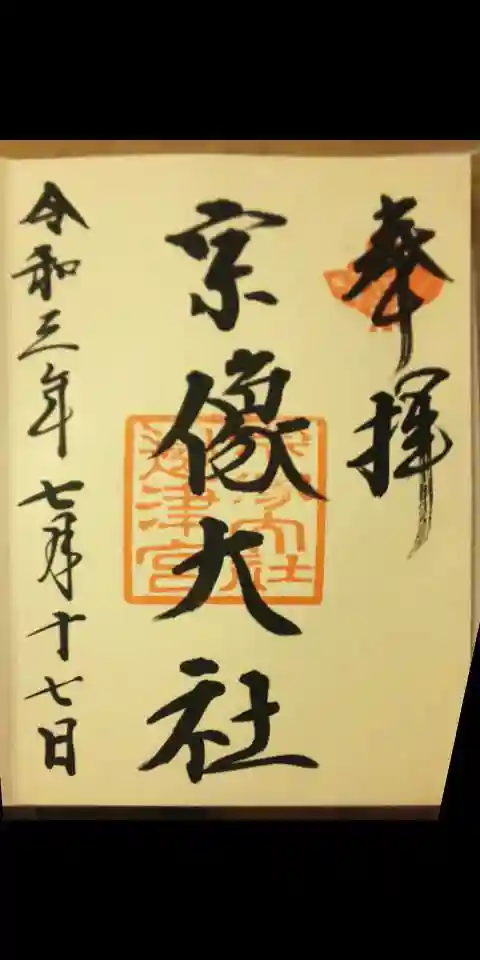 奉拝
宗像大社
宗像大社
邊津宮
令和三年七月十七日